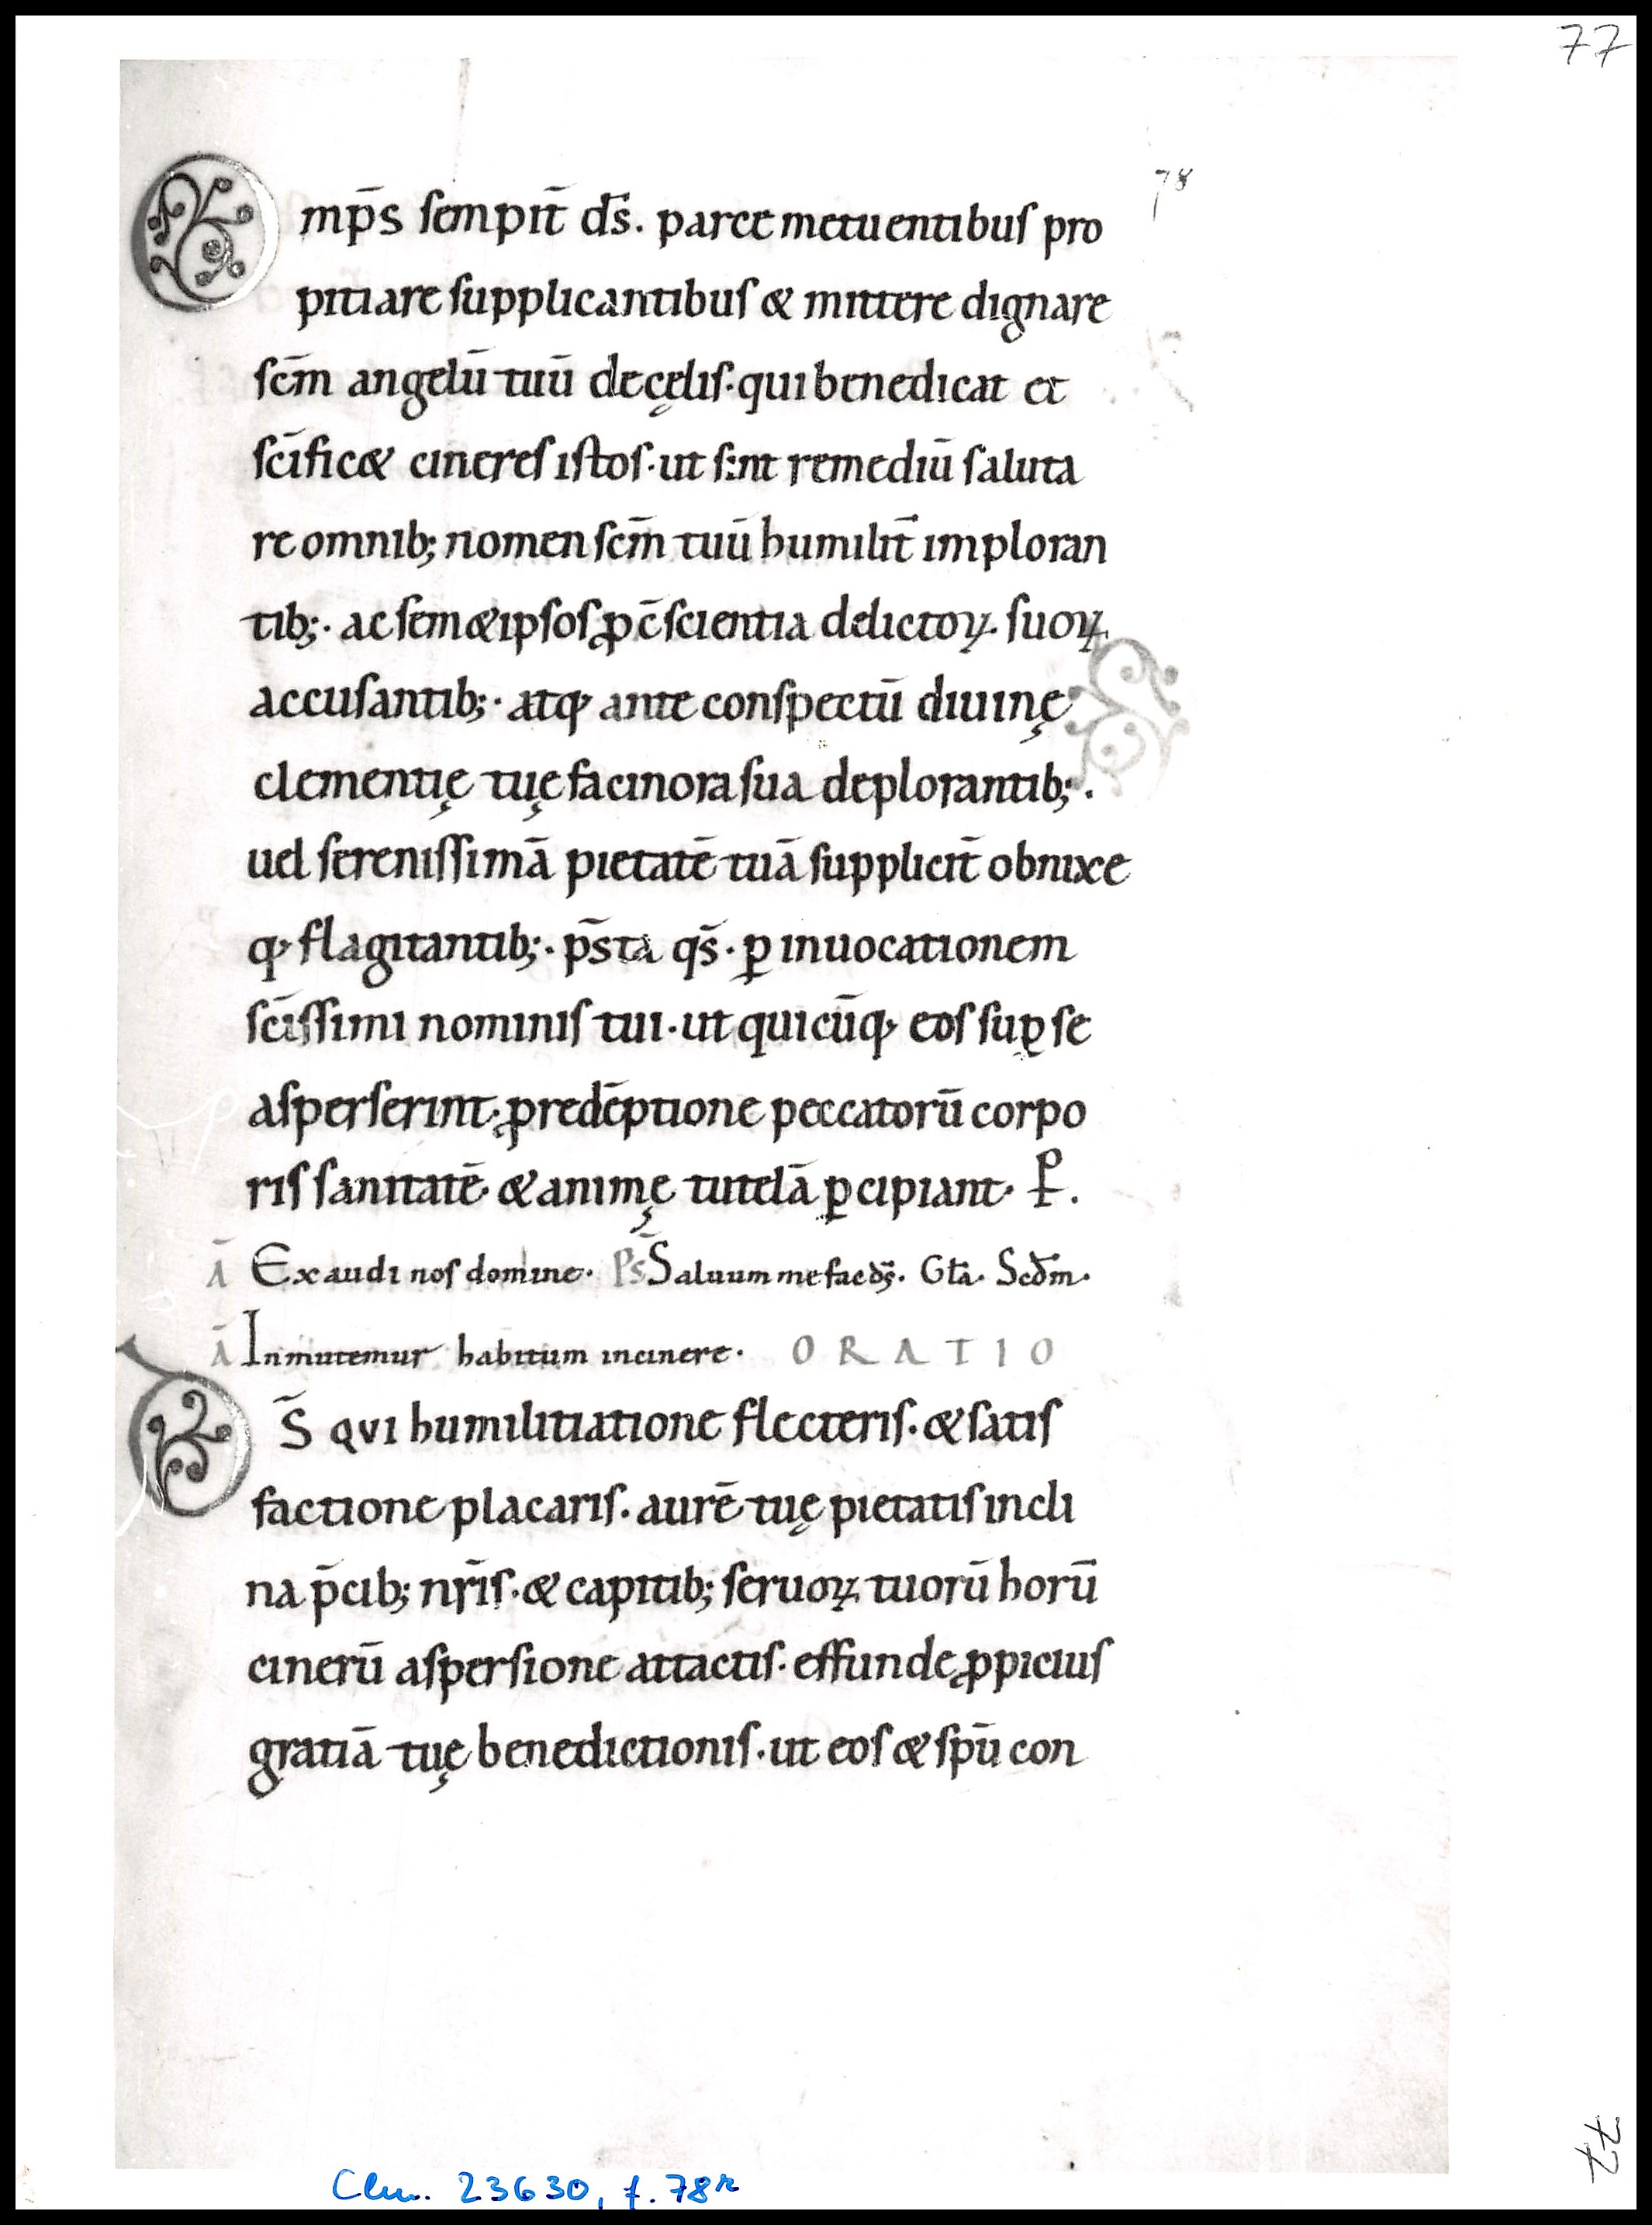 77
78
Omp̄s sempit̄ d̄s. parce metuentibus pro
pitiare supplicantibus & mittere dignare
sc̄m angelū tuū de cęlis. qui benedicat et
sc̄ific& cineres istos. ut sint remediū saluta
re omnib; nomen sc̄m tuū humilit̄ imploran
tib;. ac sem&ipsos ꝓ c̄scientia delictoꝝ. suoꝝ
accusantib;. atq; ante conspectū diuinę
clementię tuę facinora sua deplorantib;.
uel serenissimā pietatē tuā supplicit̄ obnixe
q; flagitantib;. p̄sta qs̄. ꝑ inuocationem
sc̄issimi nominis tui. ut quicūq; eos suꝑ se
asperserint. ꝓ redēptione peccatorū corpo
ris sanitatē. & animę tutelā ꝑcipiant. P.
Ā Exaudi nos domine. Ps̄ Saluum me fac ds̄. Gl̄a. Scd̄m.
Ā Inmutemur habitum in cinere. ORATIO
D̄S QVI humilitiatione flecteris. & satis
factione placaris. aurē tuę pietatis incli
na p̄cib; nr̄is. & capitib; seruoꝝ tuorū horū
cinerū aspersione attactis. effunde ꝓpicius
gratiā tuę benedictionis. ut eos & spū con
Clm. 23630, f. 78r
77